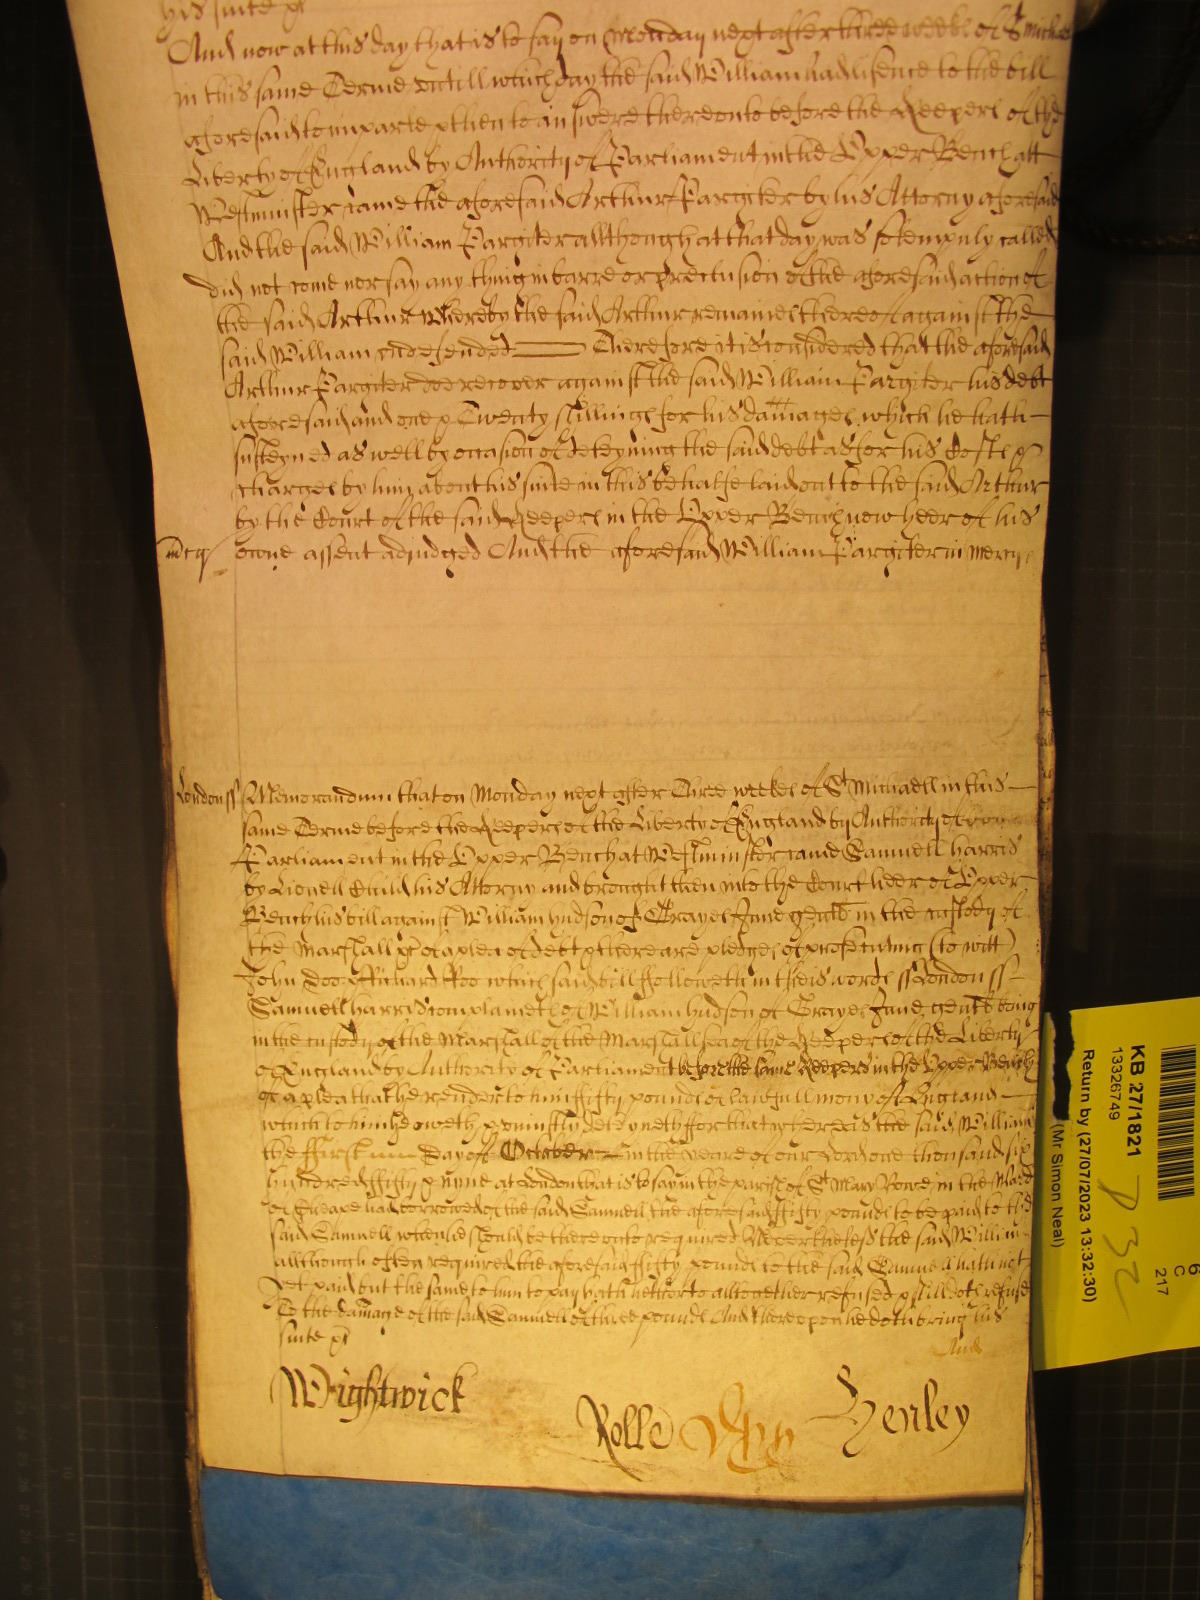 his suite &c
And now at this day that is to say on Monday next after three weeks of St Micha
in this same Terme untill which day the said William had lisence to the bill
aforesaid to imparte & then to answere thereonto before the Keepers of the
Liberty of England by Authority of Parliament in the Upper Bench att
Westminster came the aforesaid Arthur Pargiter by his Attorny aforesaid
And the said William Pargiter allthough at that day was solempnly called
did not come nor say any thing in barre or preclusion of the aforesaid action of
the said Arthur Whereby the said Arthur remaines thereof against the
said William undefended Therefore it is considered that the aforesaid
Arthur Pargiter doe recover against the said William Pargiter his debt
aforesaid and one & Twenty shillings for his damages which he hath
susteyned as well by occasion of deteyning the said debt as for his Costs &
charges by him about his suite in this behalfe laid out to the said Arthur
by the Court of the said Keepers in the Upper Bench now heer of his
mcy owne assent adjudged And the aforesaid William Pargiter in mercy
London ss Memorandum that on Monday next after Three weekes of St Michaell in this
same Terme before the Keepers of the Liberty of England by Authority of
Parliament in the Upper Bench at Westminster came Samuell Harris
by Lionell Child his Attorny and brought then into the Court heer of Upper
Bench his bill against William Hudson of Grayes Inne gent in the custody of
the Marshall &c of a plea of debt & there are pledges of prosecuting (to witt)
John Doo & Richard Roo which said bill followeth in theis words ss London ss
Samuell Harrys complaineth of William Hudson of Grayes Inne gent being
in the custody of the Marshall of the Marshallsea of the Keepers of the Liberty
of England by Authority of Parliament before the same Keepers in the Upper Bench
of a plea that he render to him fifty pounds of lawfull mony of England
which to him he oweth & uniustly deteyneth for that whereas the said William
the first day of October in the yeare of our Lord one thousand six
hundred fifty & nyne at London that is to say in the parish of St Mary Bowe in the Ward
of Cheape had borrowed of the said Samuell the aforesaid fifty pounds to be paid to the
said Samuell when he should be thereonto required Neverthelesse the said William
allthough often required the aforesaid fifty pounds to the said Samuell hath not
yet paid but the same to him to pay hath hitherto alltogether refused & still doth refuse
To the damage of the said Samuell of three pounds And thereupon he doth bring his
suite &c
And
Wightwick
Rolle
Henley
KB 27/1821
13326749
Return by (27/07/2023 13:32:30)
(Mr Simon Neal)
6
C
2117